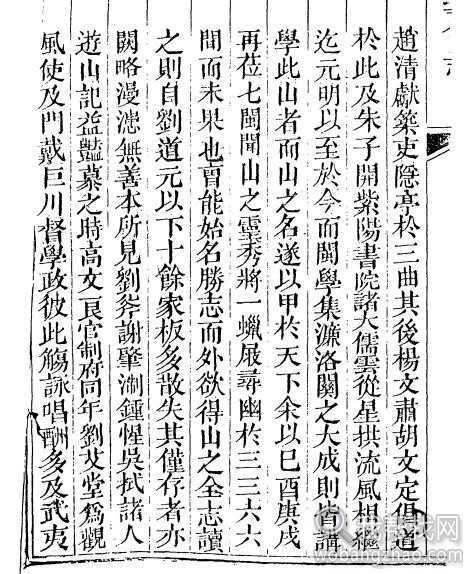 趙清獻築吏隱亭於三曲其後楊文肅胡文定俱道
於此及朱子開紫陽書院諸大儒雲從星拱流風相繼
迄元明以至於今而閩學集濂洛關之大成則皆講
學此山者而山之名遂以甲於天下余以巳酉庚戌
再莅七閩聞山之靈秀將一蠟屐尋幽於三三六六
間而未果也曹能始名勝志而外欲得山之全志讀
之則自劉道元以下十餘家板多散失其僅存者亦
闕略漫漶無善本所見劉斧謝肇淛鍾惺吳拭諸人
遊山記益豔慕之時高文良官制府同年劉艾堂爲觀
風使及門戴巨川督學政彼此觴詠唱酬多及武夷
我帮找网
wobangzhao.com